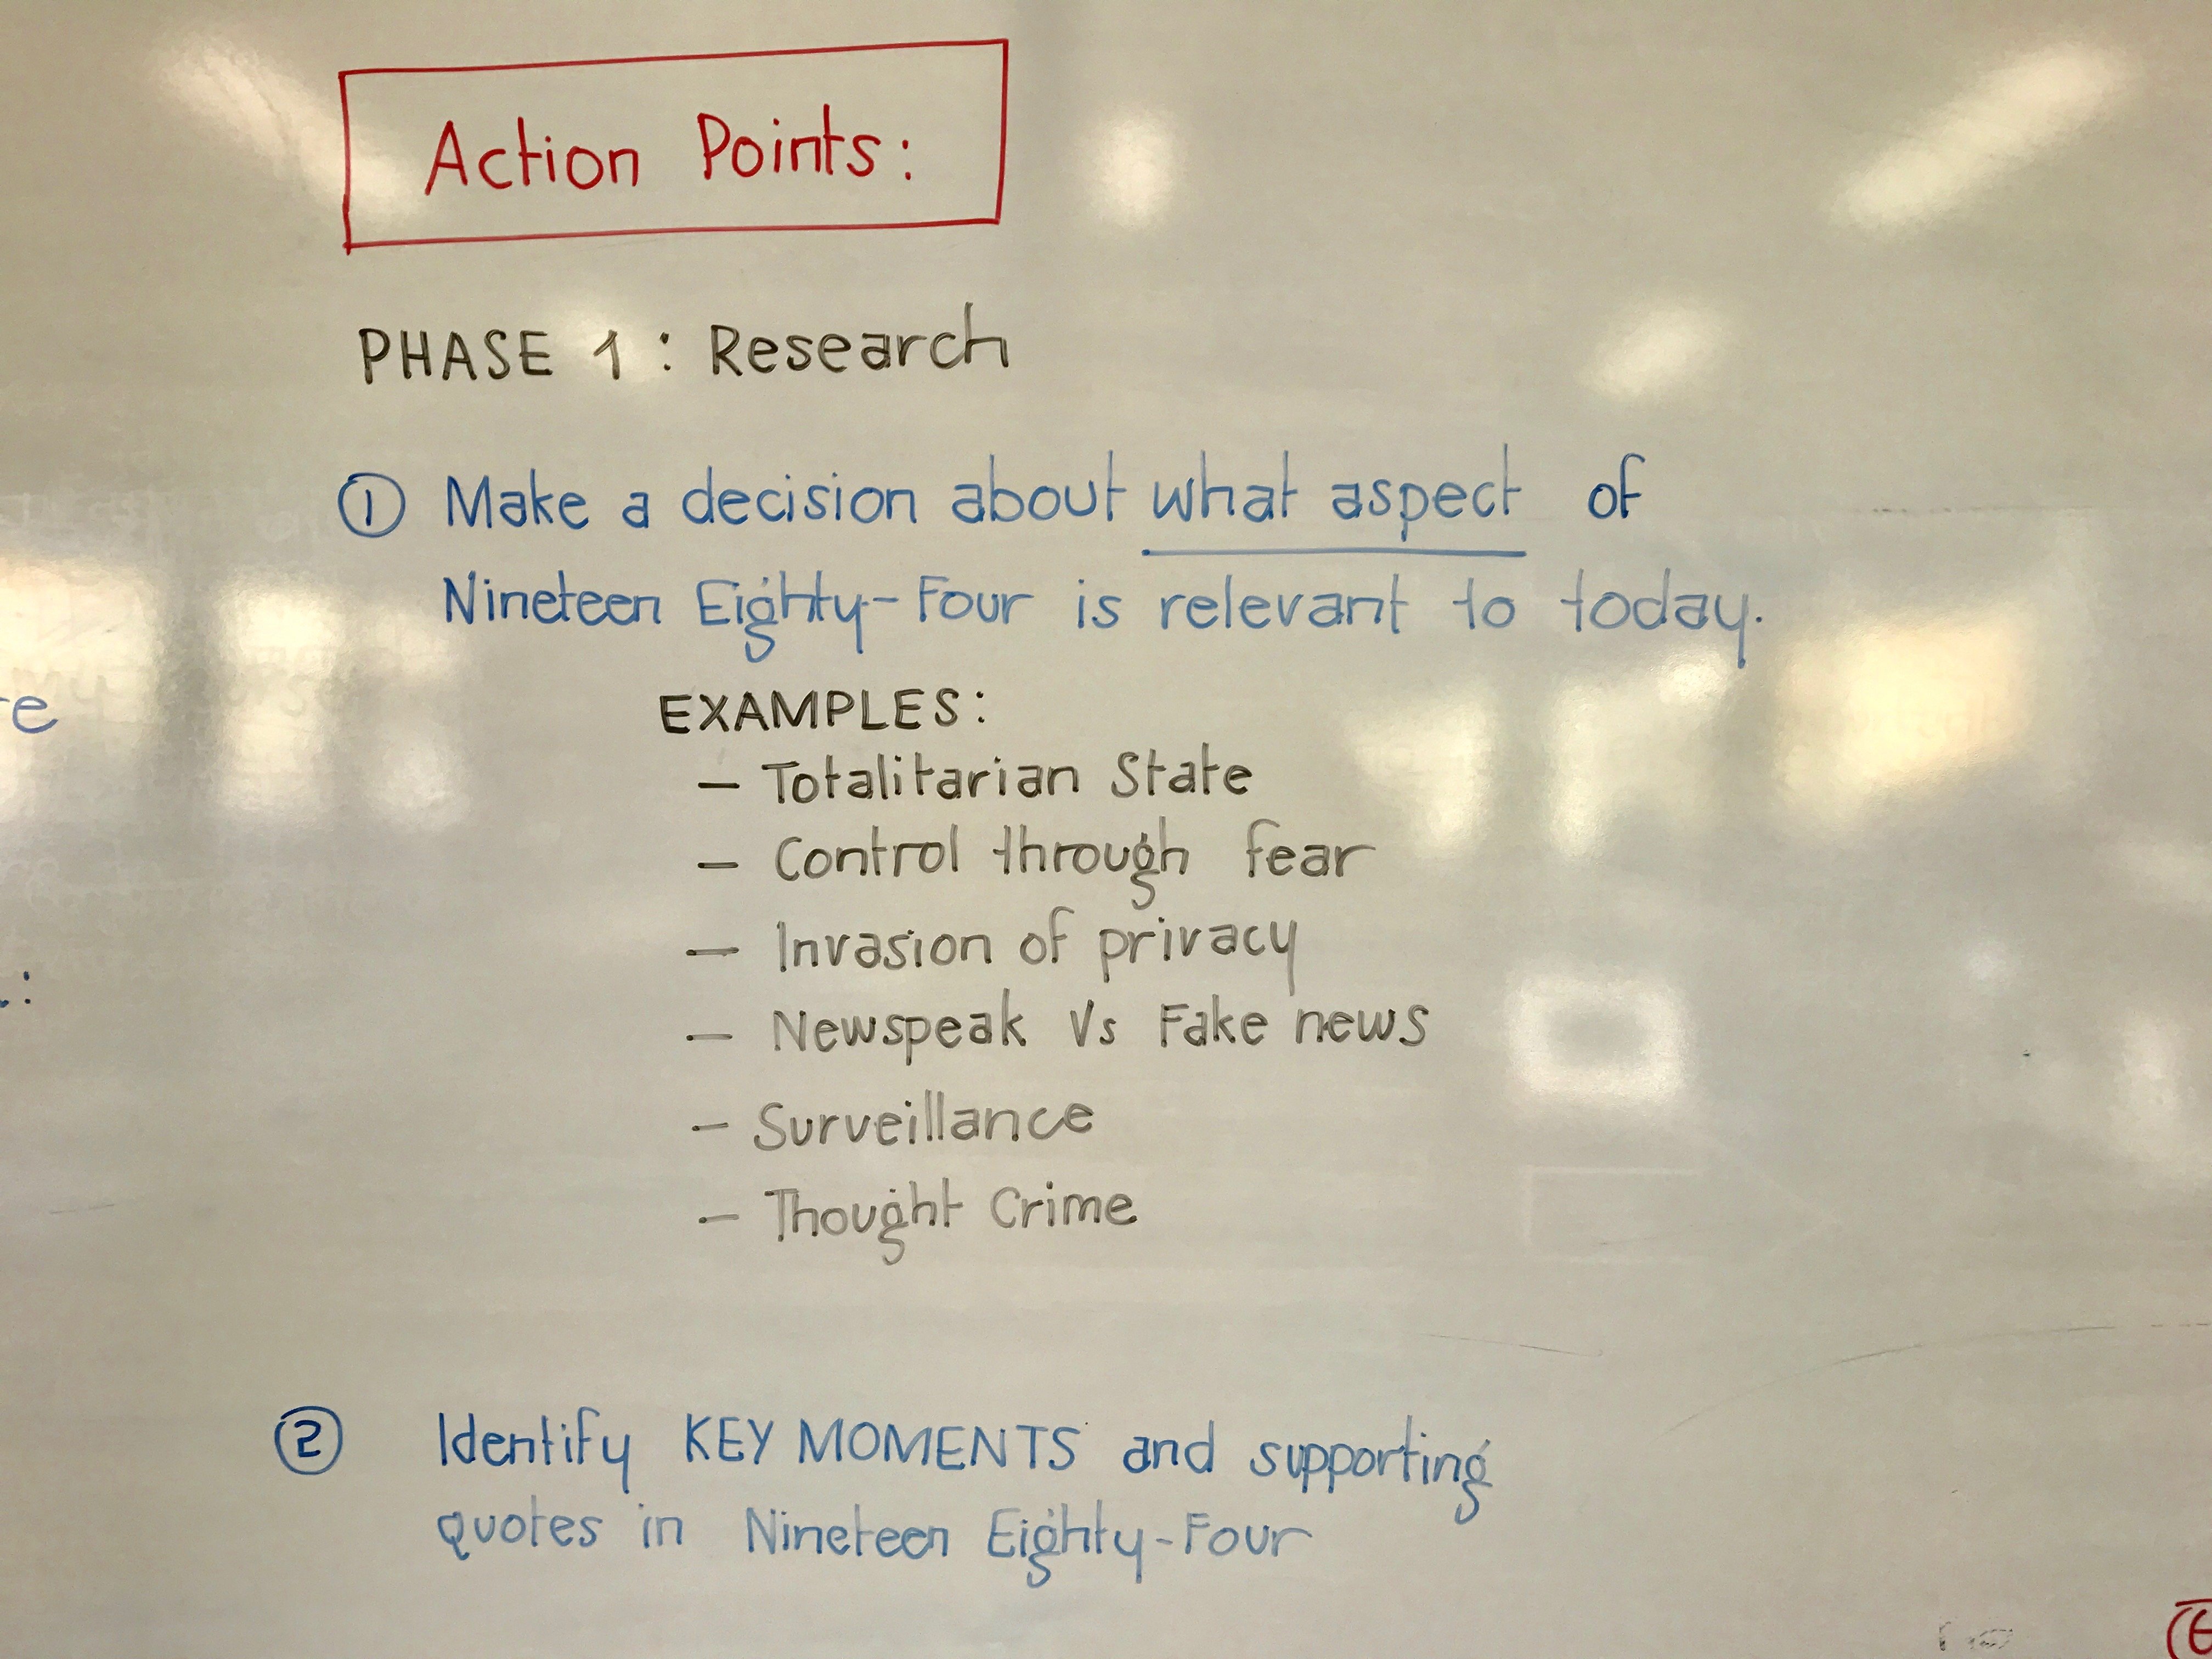 Action Points:
PHASE 1: Research
① Make a decision about what aspect of
Nineteen Eighty-Four is relevant to today.
EXAMPLES:
– Totalitarian State
– Control through fear
– Invasion of privacy
– Newspeak Vs Fake news
– Surveillance
– Thought Crime
② Identify KEY MOMENTS and supporting
quotes in Nineteen Eighty-Four